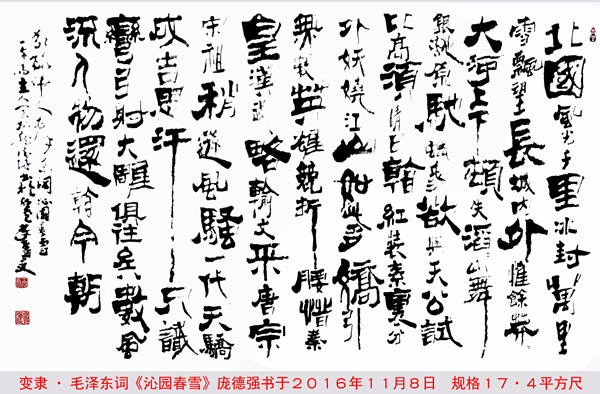 北國風光千里冰封萬里
雪飄望長城內外惟餘莽
大河上下頓失滔山舞
銀蛇原馳蠟象欲與天公試
比高須晴日看紅裝素裹分
外妖嬈江山如此多嬌引
無數英雄競折腰惜秦
皇漢武略輸文采唐宗
宋祖稍遜風騷一代天驕
成吉思汗只識
彎弓射大雕俱往矣數風
流人物還看今朝
变隶 · 毛泽东词《沁园春雪》庞德强书于2016年11月8日 规格17·4平方尺